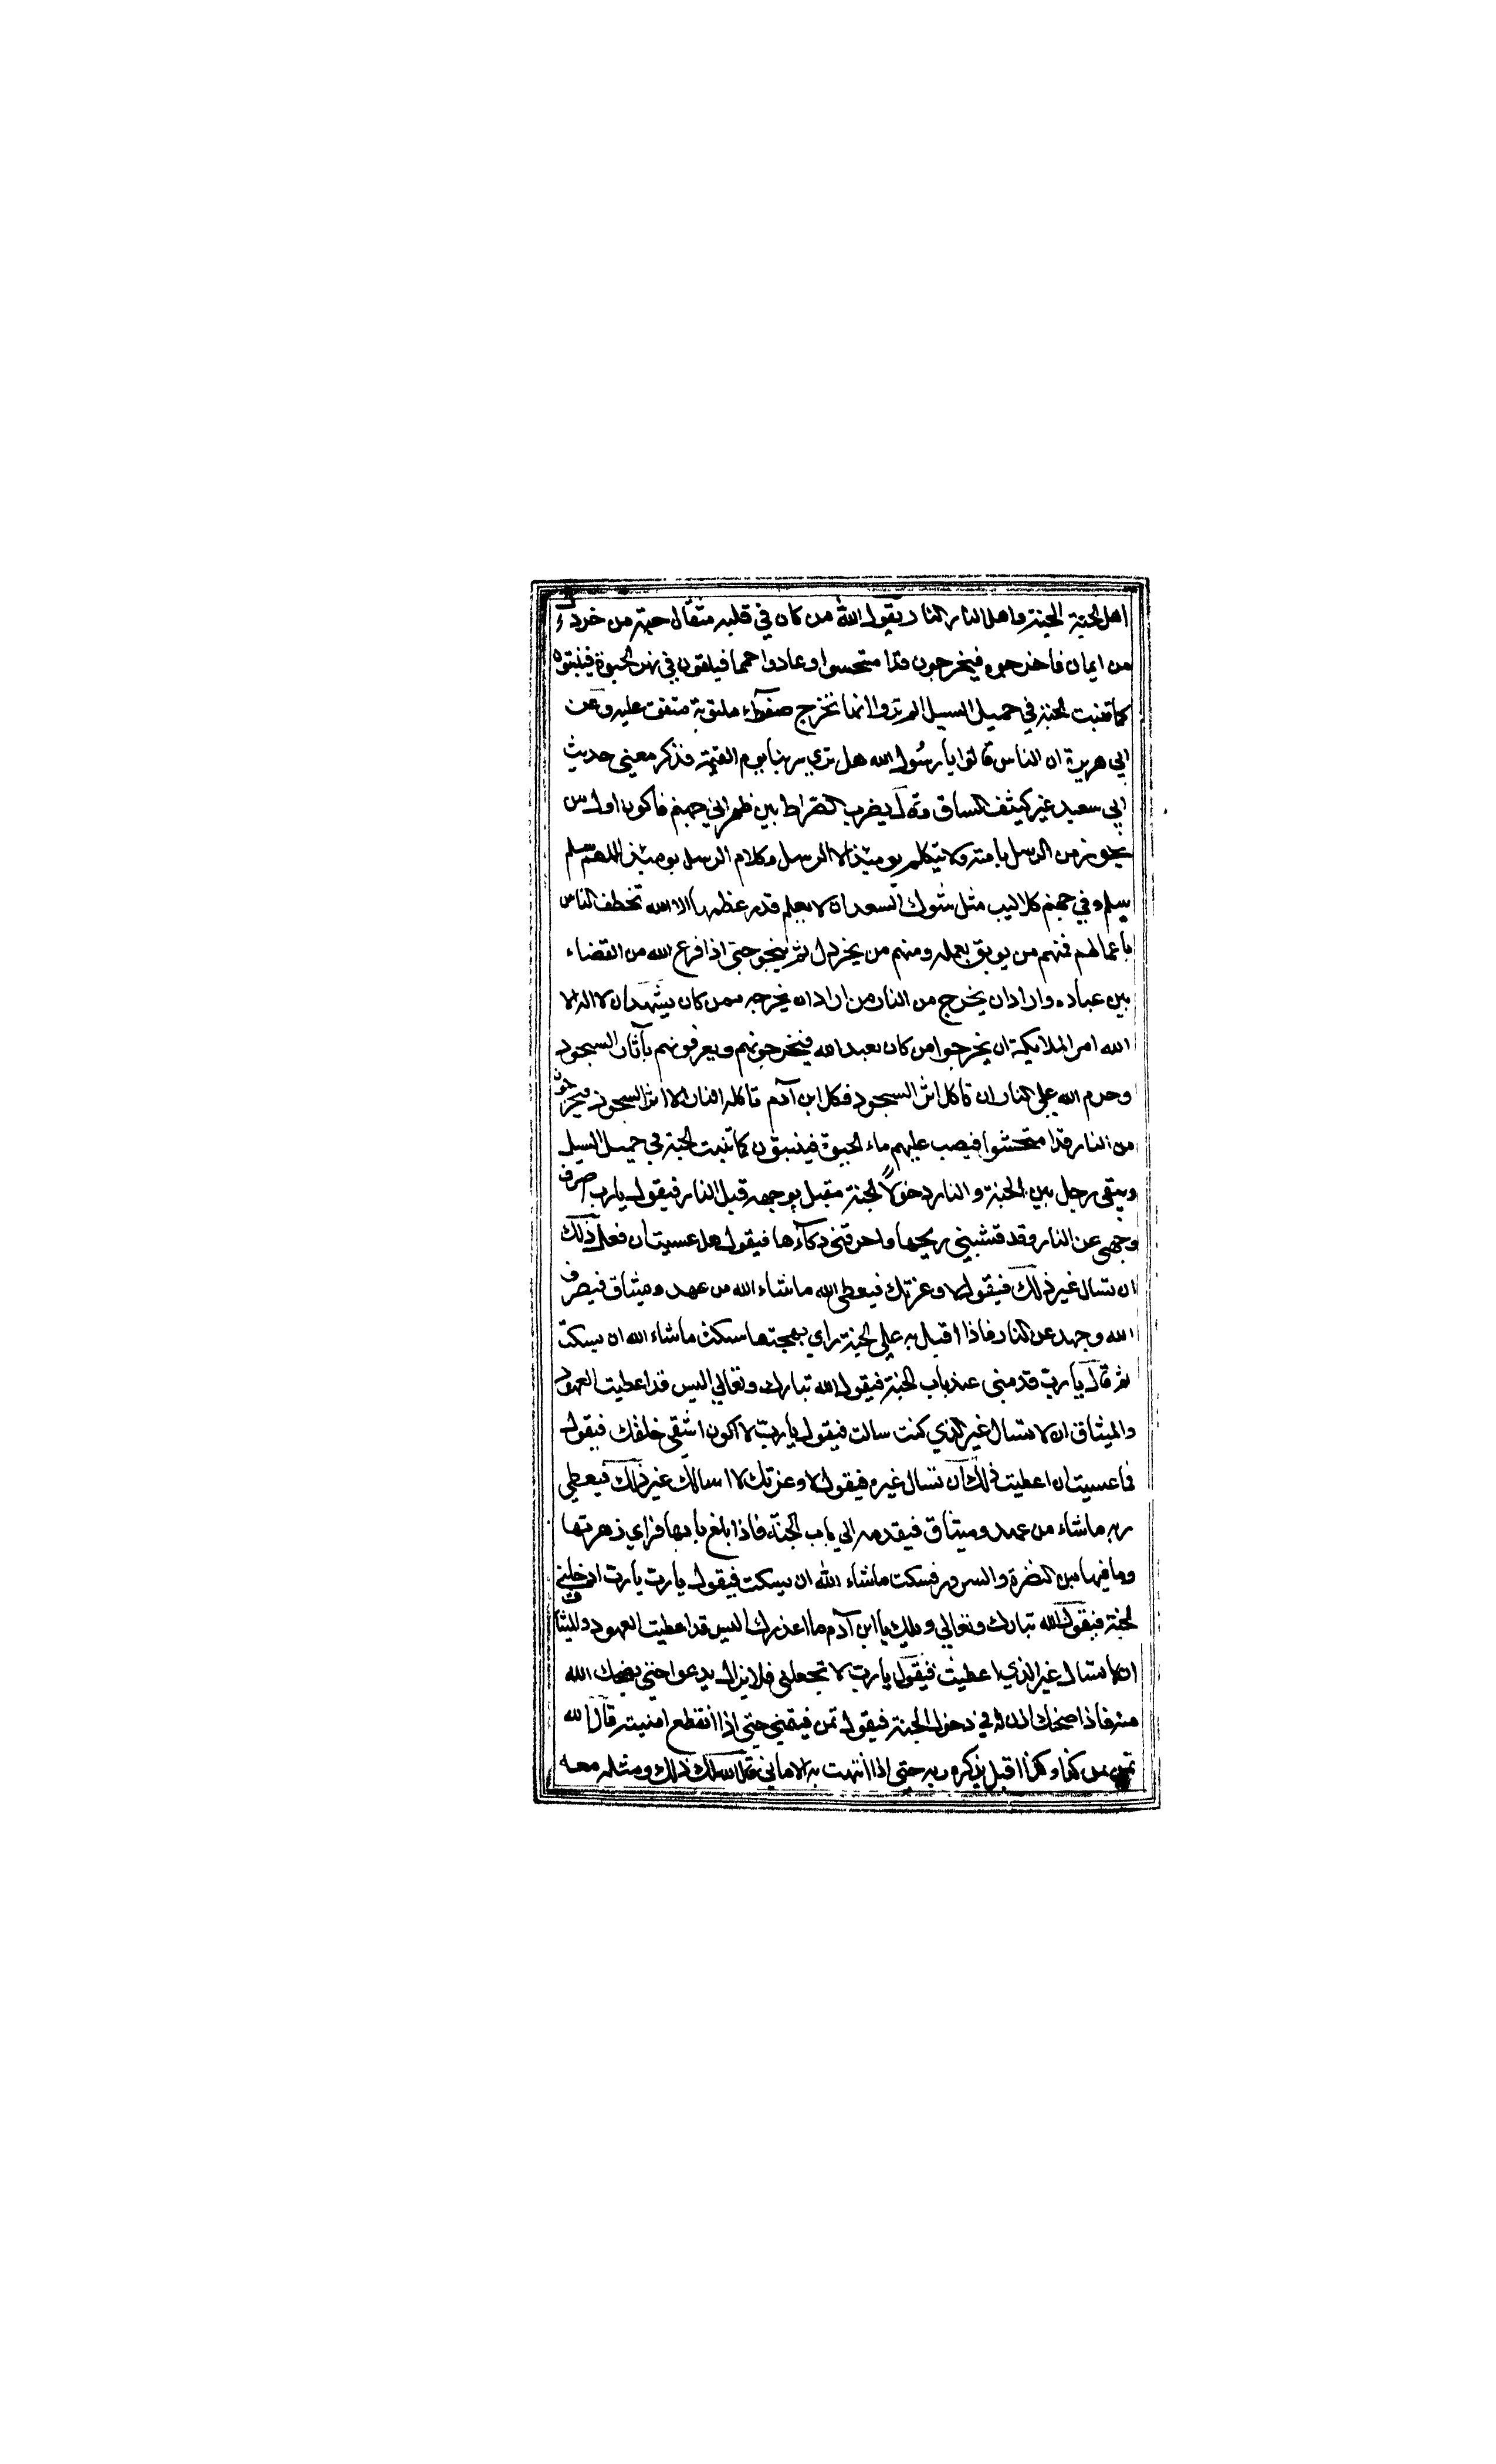 اهل الجنة الجنة واهل النار النار يقول الله من كان في قلبه مثقال حبة من خردل
من ايمان فاخرجوه فيخرجون قدا متحسوا وعادوا حمما فيلقون في نهر الحيوة فينبتون
كما تنبت الحبة في حميل السيل الم تروا انها تخرج صفراء ملتوية متفق عليه وعن
ابي هريرة ان الناس قالوا يا رسول الله هل نري ربنا يوم القيمة فذكر معني حديث
ابي سعيد غير كشف الساق وقال يضرب الصراط بين ظهراني جهنم فاكون اول من
يجوز من الرسل بامته ولا يتكلم يومئذ الا الرسل وكلام الرسل يومئذ اللهم سلم
سلم وفي جهنم كلاليب مثل شوك السعدان لا يعلم قدر عظمها الا الله تخطف الناس
باعمالهم فمنهم من يوبق بعمله ومنهم من يخردل ثم ينجو حتي اذا فرغ الله من القضاء
بين عباده واراد ان يخرج من النار من اراد ان يخرجه ممن كان يشهد ان لا اله الا
الله امر الملايكة ان يخرجوا من كان يعبد الله فيخرجونهم ويعرفونهم بآثار السجود
وحرم الله علي النار ان تاكل اثر السجود فكل ابن آدم تاكله النار الا اثر السجود فيخرجون
من النار قدا متحشوا فيصب عليهم ماء الحيوة فينبتون كما تنبت الحبة في حميل السيل
ويبقي رجل بين الجنة والنار دخولا الجنة مقبل بوجهه قبل النار فيقول يا رب اصرف
وجهي عن النار وقد قشبني ريحها واحرقني ذكاءها فيقول هل عسيت ان فعل ذلك
ان تسال غير ذلك فيقول لا وعزتك فيعطي الله ما شاء الله من عهد وميثاق فيصرف
الله وجهه عن النار فاذا اقبل به علي الجنة راي بهجتها سكت ما شاء الله ان يسكت
ثم قال يا رب قدمني عند باب الجنة فيقول الله تبارك وتعالي اليس قد اعطيت العهود
والميثاق ان لا تسال غير الذي كنت سالت فيقول يا رب لا اكون اشقي خلقك فيقول
فما عسيت ان اعطيت ذلك ان تسال غيره فيقول لا وعزتك لا اسالك غير ذلك فيعطي
ربه ما شاء من عهد وميثاق فيقدمه الي باب الجنة فاذا بلغ بابها فراي زهرتها
وما فيها من النضرة والسرور فسكت ما شاء الله ان يسكت فيقول يا رب يا رب ادخلني
الجنة فيقول الله تبارك وتعالي ويلك يا ابن آدم ما اعذرك اليس قد اعطيت العهود والميثاق
ان لا تسال غير الذي اعطيت فيقول يا رب لا تجعلني فلا يزال يدعوا حتي يضحك الله
منه فاذا ضحك اذن له في دخول الجنة فيقول تمن فيتمني حتي اذا انقطع امنيته قال الله
تمن من كذا وكذا اقبل يذكره ربه حتي اذا انتهت به الاماني قال الله لك ذلك ومثله معه